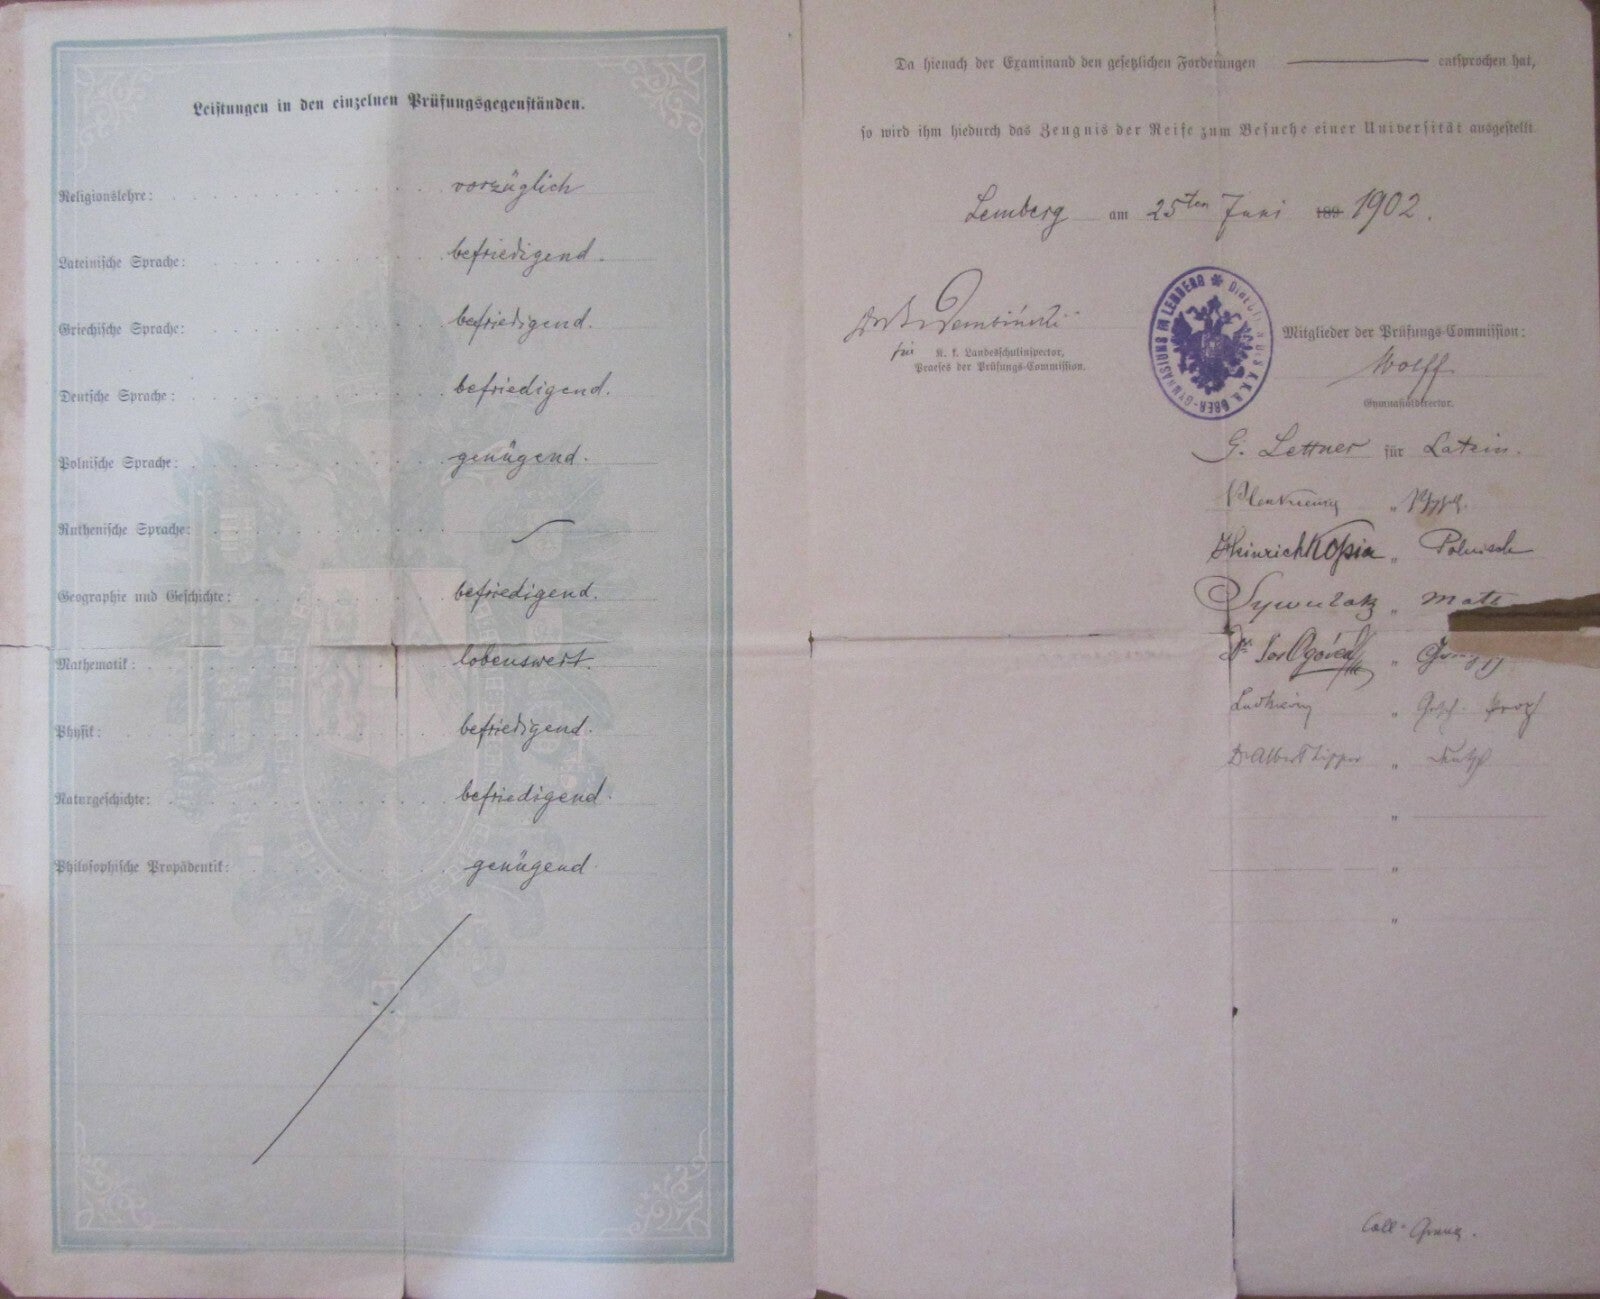 Leistungen in den einzelnen Prüfungsgegenständen.
Religionslehre: vorzüglich
Lateinische Sprache: befriedigend.
Griechische Sprache: befriedigend.
Deutsche Sprache: befriedigend.
Polnische Sprache: genügend.
Ruthenische Sprache:
Geographie und Geschichte: befriedigend.
Mathematik: lobenswert.
Physik: befriedigend.
Naturgeschichte: befriedigend.
Philosophische Propädeutik: genügend.
Da hienach der Examinand den gesetzlichen Forderungen entsprochen hat,
so wird ihm hiedurch das Zeugnis der Reife zum Besuche einer Universität ausgestellt.
Lemberg am 25ten Juni 189 1902.
für K. k. Landesschulinspector,
Praeses der Prüfungs-Commission.
K. K. II. OBER-GYMNASIUMS IN LEMBERG
Mitglieder der Prüfungs-Commission:
Wolff
Gymnasialdirector.
G. Lettner für Latein.
Heinrich Kopia „ Polnisch
„ Math
Dr Albert Zipper „ Deutsch